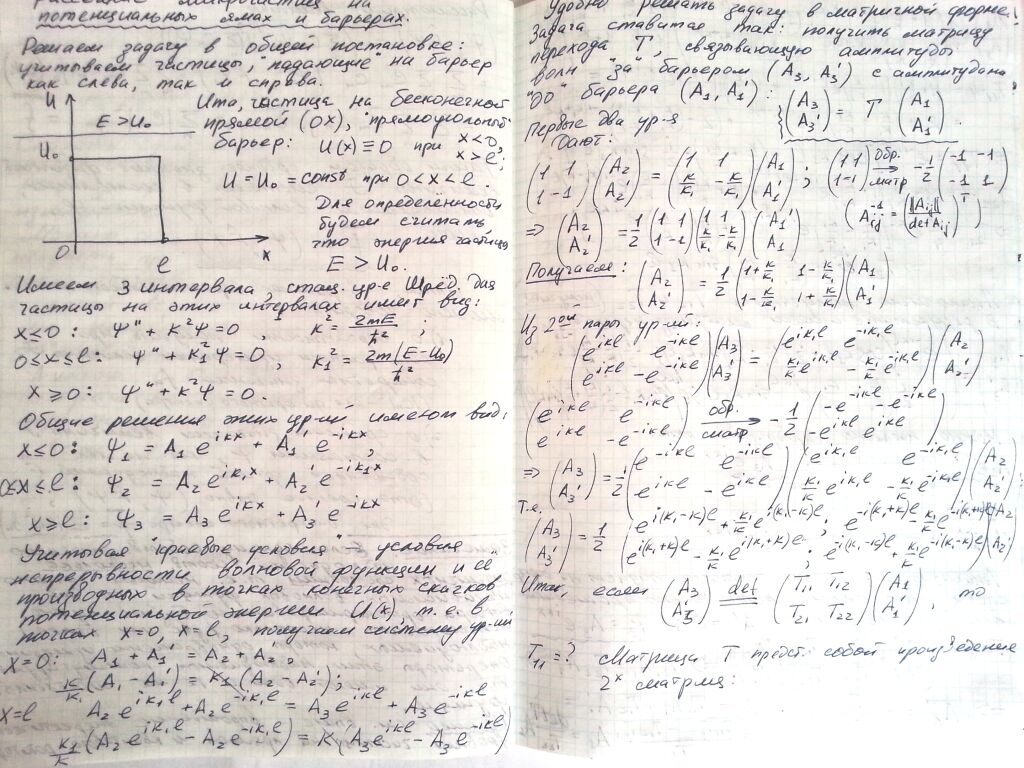 потенциальных ямах и барьерах.
Решаем задачу в общей постановке:
учитываем частицы, "падающие" на барьер
как слева, так и справа.
U
E > U₀
U₀
0
l
x
Итак, частица на бесконечной
прямой (OX), "прямоугольный"
барьер: U(x) ≡ 0 при x<0,
x>l;
U = U₀ = const при 0 < x < l.
Для определённости
будем считать,
что энергия частицы
E > U₀.
Имеем 3 интервала, стац. ур-е Шрёд. для
частицы на этих интервалах имеет вид:
x ≤ 0: Ψ'' + k²Ψ = 0, k² = 2mE/ħ² ;
0 ≤ x ≤ l: Ψ'' + k₁²Ψ = 0, k₁² = 2m(E-U₀)/ħ²
x ≥ 0: Ψ'' + k²Ψ = 0.
Общие решения этих ур-ий имеют вид:
x ≤ 0: Ψ₁ = A₁ e^{ikx} + A₁' e^{-ikx},
0 ≤ x ≤ l: Ψ₂ = A₂ e^{ik₁x} + A₂' e^{-ik₁x}
x ≥ l: Ψ₃ = A₃ e^{ikx} + A₃' e^{-ikx}
Учитывая "краевые условия" – условия
непрерывности волновой функции и её
производных в точках конечных скачков
потенциальной энергии U(x), т.е. в
точках x=0, x=l, получаем систему ур-ий
x=0: A₁ + A₁' = A₂ + A₂',
k/k₁ (A₁ - A₁') = k₁(A₂ - A₂');
x=l A₂ e^{ik₁l} + A₂ e^{-ik₁l} = A₃ e^{ikl} + A₃ e^{-ikl}
k₁/k (A₂ e^{ik₁l} - A₂ e^{-ik₁l}) = k(A₃ e^{ikl} - A₃ e^{-ikl})
Удобно решать задачу в матричной форме.
Задача ставится так: получить матрицу
перехода T, связывающую амплитуды
волн "за" барьером (A₃, A₃') с амплитудами
"до" барьера (A₁, A₁'): (A₃ A₃') = T (A₁ A₁').
Первые два ур-я
дают:
(1 1; 1 -1)(A₂ A₂') = (1 1; k/k₁ -k/k₁)(A₁ A₁') ; (1 1; 1 -1) обр. матр → -1/2 (-1 -1; -1 1)
⇒ (A₂ A₂') = 1/2 (1 1; 1 -1)(1 1; k/k₁ -k/k₁)(A₁' A₁) (A_{ij}^{-1} = (‖A_{ij}‖/det A_{ij})^T)
Получаем: (A₂ A₂') = 1/2 (1+k/k₁ 1-k/k₁; 1-k/k₁ 1+k/k₁)(A₁ A₁')
Из 2ой пары ур-ий:
(e^{ikl} e^{-ikl}; e^{ikl} -e^{-ikl})(A₃ A₃') = (e^{ik₁l} e^{-ik₁l}; k₁/k e^{ik₁l} -k₁/k e^{-ik₁l})(A₂ A₂')
(e^{ikl} e^{-ikl}; e^{ikl} -e^{-ikl}) обр. матр → -1/2 (-e^{-ikl} -e^{-ikl}; -e^{ikl} e^{ikl})
⇒ (A₃ A₃') = 1/2 (e^{-ikl} e^{-ikl}; e^{ikl} -e^{ikl})(e^{ik₁l} e^{-ik₁l}; k₁/k e^{ik₁l} -k₁/k e^{-ik₁l})(A₂ A₂')
Т.е.
(A₃ A₃') = 1/2 (e^{i(k₁-k)l} + k₁/k e^{i(k₁-k)l}; e^{-i(k₁+k)l} - k₁/k e^{-i(k₁+k)l}; e^{i(k₁+k)l} - k₁/k e^{i(k₁+k)l}; e^{-i(k₁-k)l} + k₁/k e^{-i(k₁-k)l})(A₂ A₂')
Итак, если (A₃ A₃') det = (T₁₁ T₁₂; T₂₁ T₂₂)(A₁ A₁'), то
T₁₁ = ? Матрица T предст. собой произведение
2ˣ матриц: